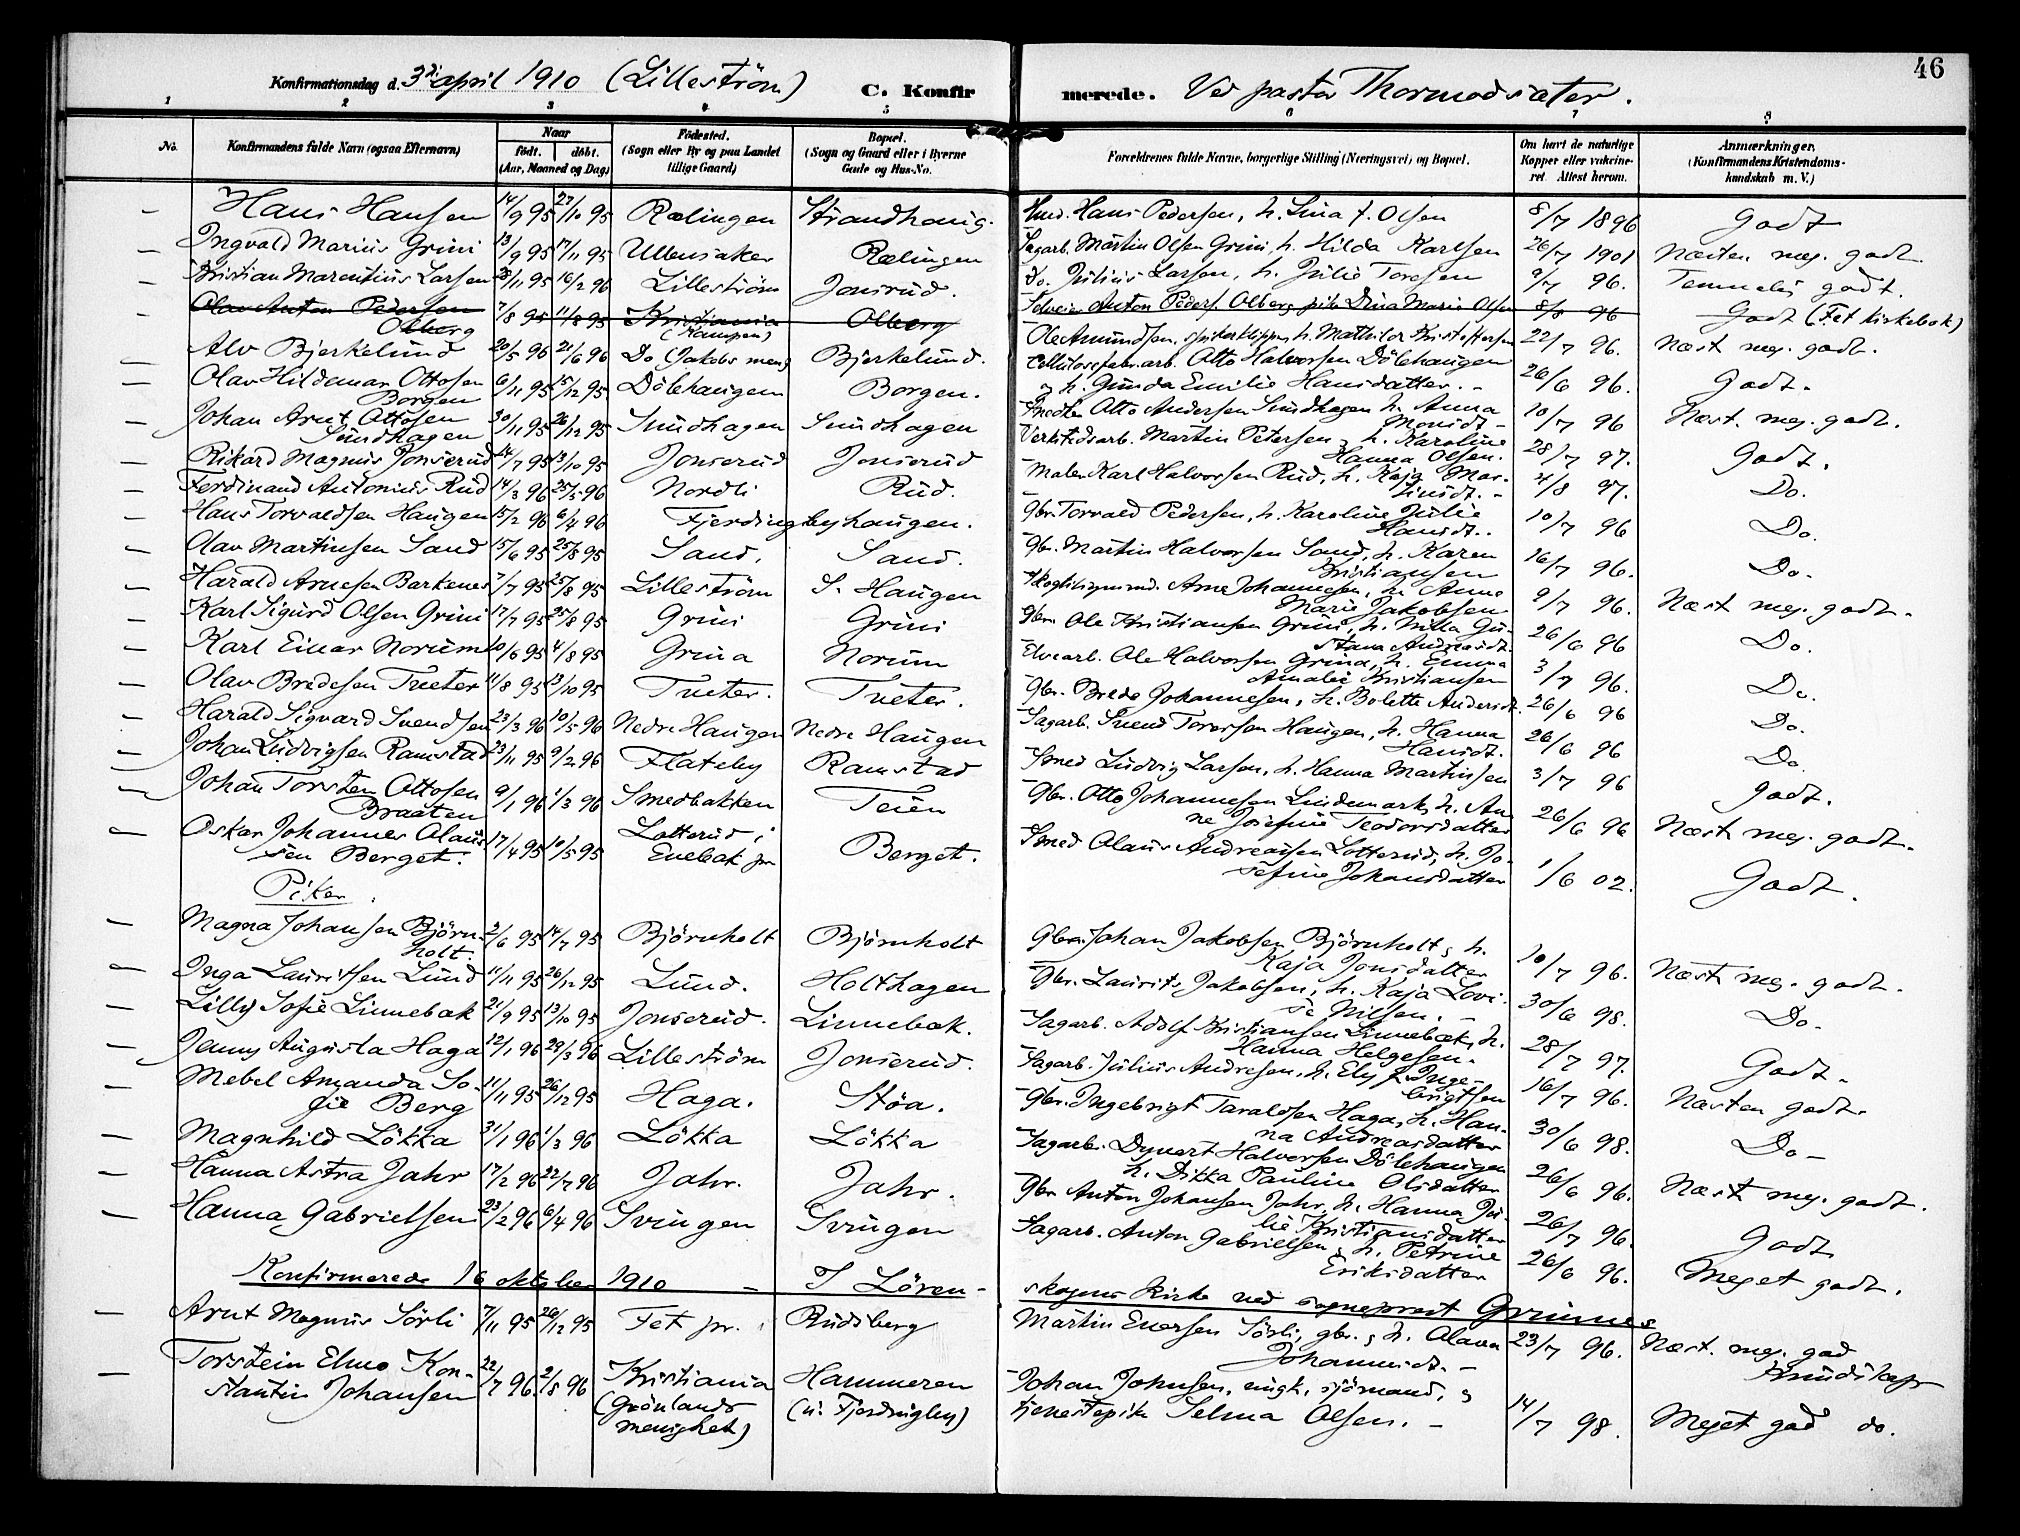 46
Konfirmationsdag d. 3di april 1910 (Lilleström) C. Konfirmerede. Ved pastor Thormodsæter.
1 2 3 4 5 6 7 8
No. Konfirmandens fulde Navn (ogsaa Efternavn) Naar født. døbt. (Aar, Maaned og Dag) Fødested. (Sogn eller By og paa Landet tillige Gaard) Bopæl. (Sogn og Gaard eller i Byerne Gade og Hus-No. Forældrenes fulde Navne, borgerlige Stilling (Næringsvei) og Bopæl. Om havt de naturlige Kopper eller vakcineret. Attest herom. Anmærkninger, (Konfirmandens Kristendomskundskab m. V.)
— Hans Hansen 14/9 95 27/10 95 Rælingen Strandhaug. Hans Pedersen, h. Lina f. Olsen 8/7 1896 Godt
— Ingvald Marius Grini 13/9 95 17/11 95 Ullensaker Rælingen Sagarb. Martin Olsen Grini, h. Hilda Karlsen 26/7 1901 Næsten meg. godt.
— Kristian Marentius Larsen 28/11 95 16/2 96 Lilleström Jonsrud. Do. Julius Larsen, h. Julie Toresen 9/7 96. Temmelig godt.
Olav Anton Pedersen Olberg 7/8 95 11/8 95 Kristiania (Kampen) Olberg Anton Peders. Olberg, pike Dina Marie Olsen 8/8 96 Godt (Fet kirkebok)
— Alv Bjerkelund 20/5 96 21/6 96 Do (Jakobs men) Bjerkelund. Ole Amundsen, spikerklipper, h. Mathilde Kristoffersen 22/7 96. Næst meg. godt.
— Olav Hildemar Ottosen Borgen 6/11 95 15/12 95 Dölehaugen Borgen. Cellulosefabr.arb. Otto Halvorsen Dölehaugen og h. Gunda Emilie Hansdatter. – 26/6 96. Godt.
— Johan Arnt Ottosen Sundhagen 30/11 95 26/12 95 Sundhagen Sundhagen Snedker Otto Andersen Sundhagen h. Anna Monsdt – 10/7 96 Næst. meg. godt.
— Rikard Magnus Jonserud 14/7 95 13/10 95 Jonserud Jonserud Verkstedsarb. Martin Petersen, h. Karoline Hanna Olsen. 28/7 97. Godt.
— Ferdinand Antonius Rud 14/3 96 25/5 96 Nordli Rud. Maler Karl Halvorsen Rud, h. Kaja Martinsdt. – 4/8 97. Do.
— Hans Torvaldsen Haugen 15/2 96 6/4 96 Fjerdingbyhaugen. Gbr. Torvald Pedersen, h. Karoline Julie Hansdt.. 10/7 96 Do.
— Olav Martinsen Sand 15/6 95 25/8 95 Sand, Sand. Gbr. Martin Halvorsen Sand, h. Karen Kristiansen 16/7 96. Do.
— Harald Arnesen Barkenes 7/7 95 25/8 95 Lilleström S. Haugen Arne Johannesen, h. Anna Marie Jakobsen 9/7 96. Næst meg. godt.
— Karl Sigurd Olsen Grini 17/7 95 25/8 95 Grini Grini Gbr. Ole Kristiansen Grini, h. Milla Gustava Andreasdt. 26/6 96 Do.
— Karl Einar Norum 10/6 95 4/8 95 Grina Norum Elvearb. Ole Halvorsen Grina, h. Emma Amalie Kristiansen 3/7 96. Do.
— Olav Bredesen Tveter 11/8 95 13/10 95 Tveter. Tveter. Gbr. Brede Johannesen, h. Bolette Andersdt. 26/6 96 Do.
— Harald Sigvard Svendsen 23/3 96 10/5 96 Nedre Haugen Nedre Haugen Sagarb. Svend Torersen Haugen, h. Hanna Hansdt. 26/6 96 Do.
— Johan Ludvigsen Ramstad 23/11 95 9/2 96 Flateby Ramstad Smed Ludvig Larsen, h. Hanna Martinsen 3/7 96 Godt.
— Johan Torsten Ottosen Braaten 9/1 96 1/3 96 Smedbakken Teien Gbr. Otto Johannesen Lindemark, h. Anne Josefine Teodorsdatter 26/6 96 Næst meg. godt.
— Oskar Johannes Olaussen Berget. 17/4 95 10/5 95 Lotterud i Enebak pr Berget. Smed Olaus Andreassen Lotterud, h. Josefine Johansdatter 1/6 02. Godt.
Piker.
— Magna Johansen Björnholt. 2/6 95 14/7 95 Björnholt Björnholt Gbr. Johan Jakobsen Björnholt, h. Kaja Jonsdatter 10/7 96. Næst meg. godt.
— Inga Lauritsen Lund 11/11 95 26/12 95 Lund. Holthagen Gbr. Laurits Jakobsen, h. Kaja Lovise Nilsen. – 30/6 98. Do.
— Lilly Sofie Linnebak 21/9 95 13/10 95 Jonserud. Linnebak. Sagarb. Adolf Kristiansen Linnebæk, h. Hanna Helgesen. 28/7 97. Godt.
— Jenny Augusta Haga 12/1 96 29/3 96 Lilleström Jonserud. Sagarb. Julius Andresen, h. Ely f. Ingebrigtsen 16/7 96. Næsten godt.
— Mebel Amanda Sofie Berg 11/11 95 26/12 95 Haga. Stöa. Gbr. Ingebrigt Taraldsen Haga, h. Hanna Andreasdatter 30/6 98. Do –
— Magnhild Lökka 31/1 96 1/3 96 Lökka Lökka Sagarb. Dyvert Halvorsen Dölehaugen h. Dikka Pauline Olsdatter 26/6 96. Næst meg. godt.
— Hanna Astra Jahr 17/2 96 22/7 96 Jahr. Jahr. Gbr Anton Johansen Jahr, h. Hanna Julie Kristiansdatter 26/7 96. Godt
— Hanna Gabrielsen 23/2 96 6/4 96 Svingen Svingen Sagarb. Anton Gabrielsen, h. Petrine Eriksdatter 26/6 96. Meget godt.
Konfirmerede 16 oktober 1910 – I Lörenskogens Kirke ved sogneprest Grinnes
— Arnt Magnus Sörli 7/11 95 26/12 95 Fet pr. Rudsberg Martin Evensen Sörli, gbr. h. Olava Johannesdt. – 23/7 96. Næst. meg. god Kundskap
— Torstein Elmo Konstantin Johansen 22/7 96 2/8 96 Kristiania (Grönlands menighet) Hammeren (u. Fjerdingby) Johan Johnsen, ungk., sjömand, og tjenestepike Selma Olsen. – 14/7 98. Meget god do.